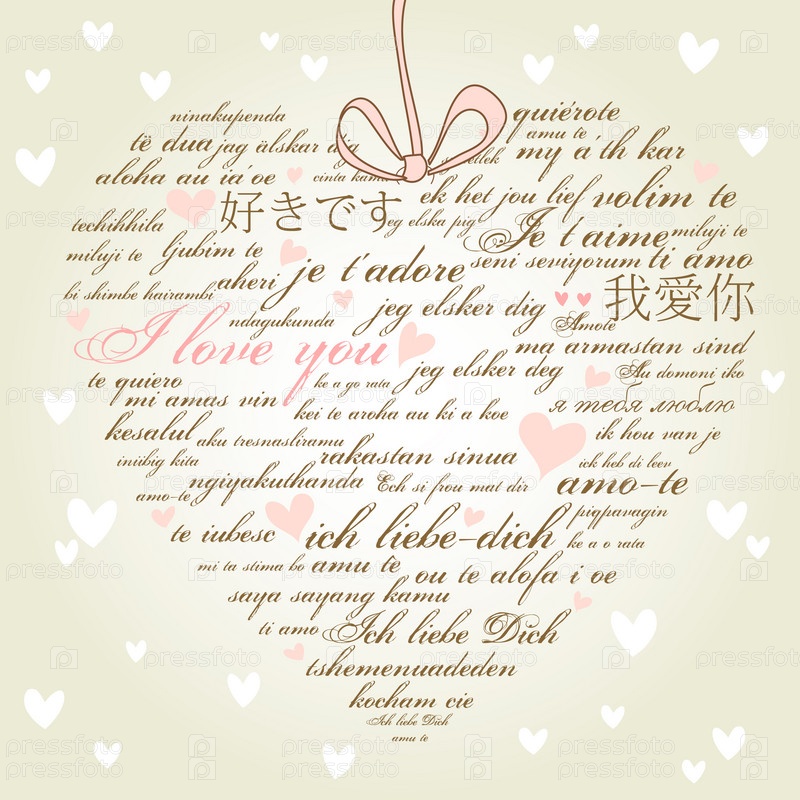 ninakupenda quiérote
amu te
të dua jag älskar dig my a'th kar
aloha au ia'oe cinta kamu
ek het jou lief volim te
techihhila 好きです eg elska pig Je t'aime miluji te
miluji te ljubim te seni seviyorum ti amo
bi shimbe hairambi aheri je t'adore
jeg elsker dig 我愛你
ndagukunda Amote
I love you ma armastan sind
te quiero ke a go rata jeg elsker deg Au domoni iko
mi amas vin kei te aroha au ki a koe я тебя люблю
kesalul aku tresnasliramu ik hou van je
iniibig kita rakastan sinua ick heb di leev
ngiyakuthanda Ech si frou mat dir amo-te
amo-te piqpavagin
te iubesc ich liebe-dich ke a o rata
mi ta stima bo amu te ou te alofa i oe
saya sayang kamu
ti amo Ich liebe Dich
tshemenuadeden
kocham cie
Ich liebe Dich
amu te